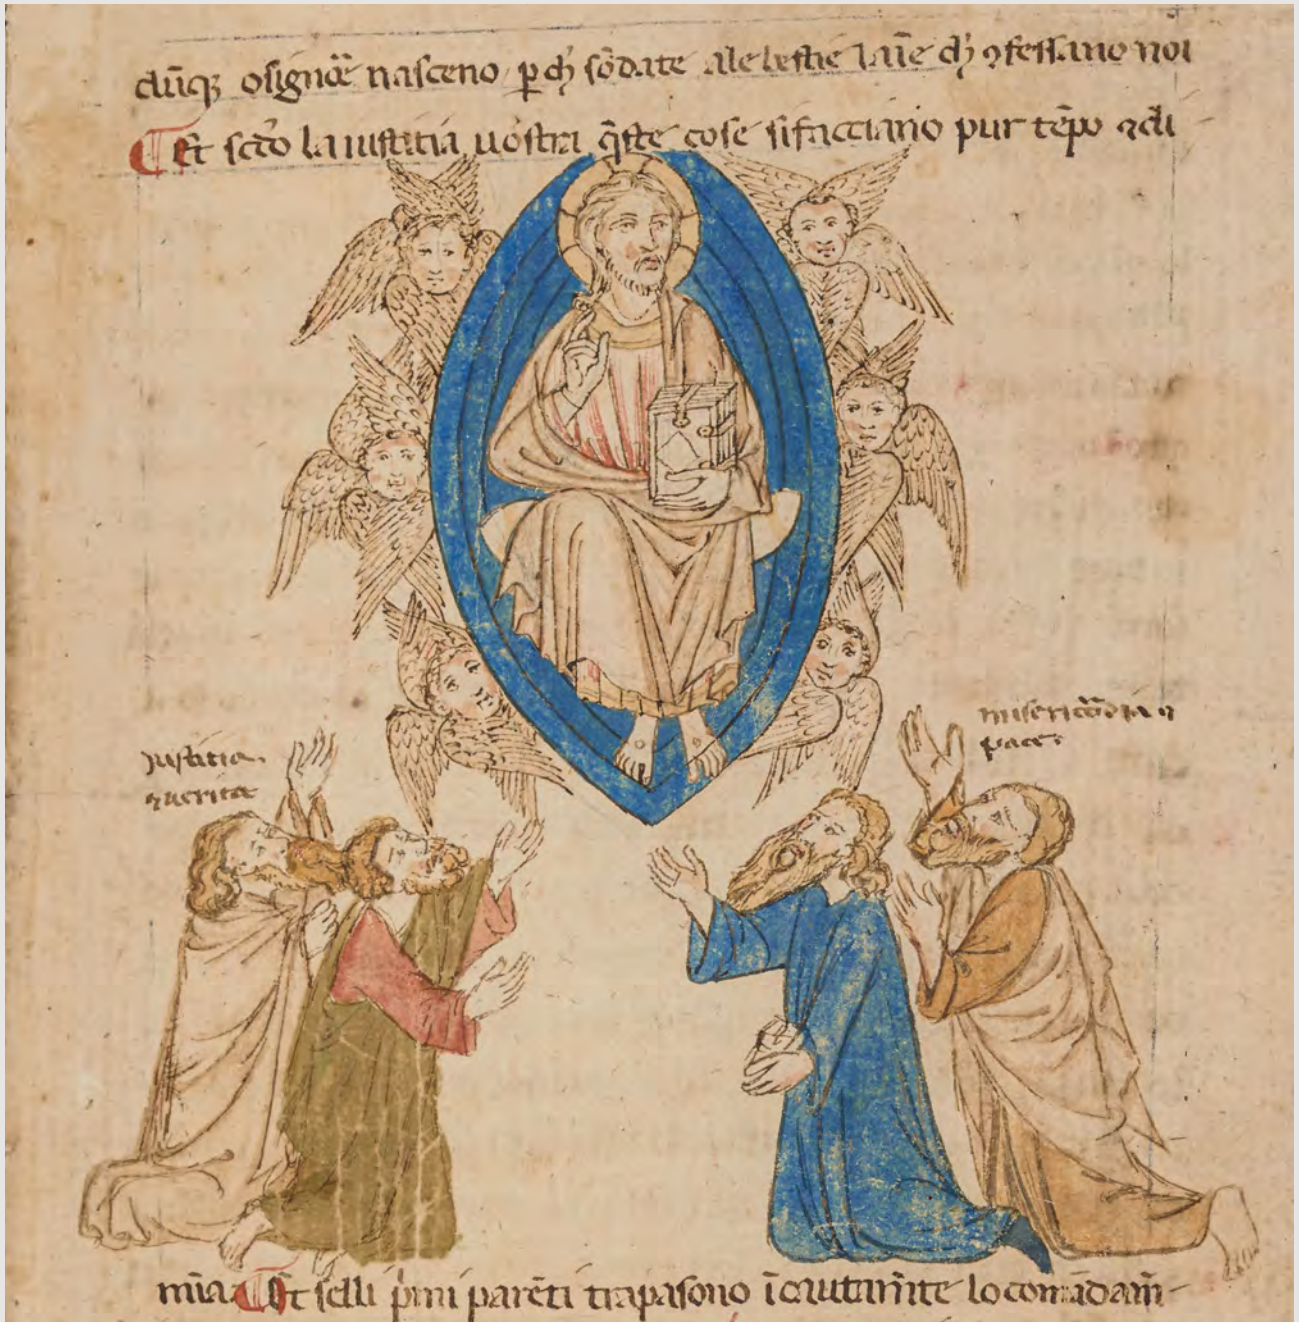 dūq̄ osignōē nasceno p̄ ch̄ sōdate ale bestie laīe ch̄ ꝯfessano noi
Et scd̄o la iustitia uōstra q̄ste cose si facciano pur tēpo ⁊ di
iustitia
⁊ uerita
misericōrdia ⁊
pace
mīa Et selli p̄mi parēti trapasono īcautam̄te lo comādam̄